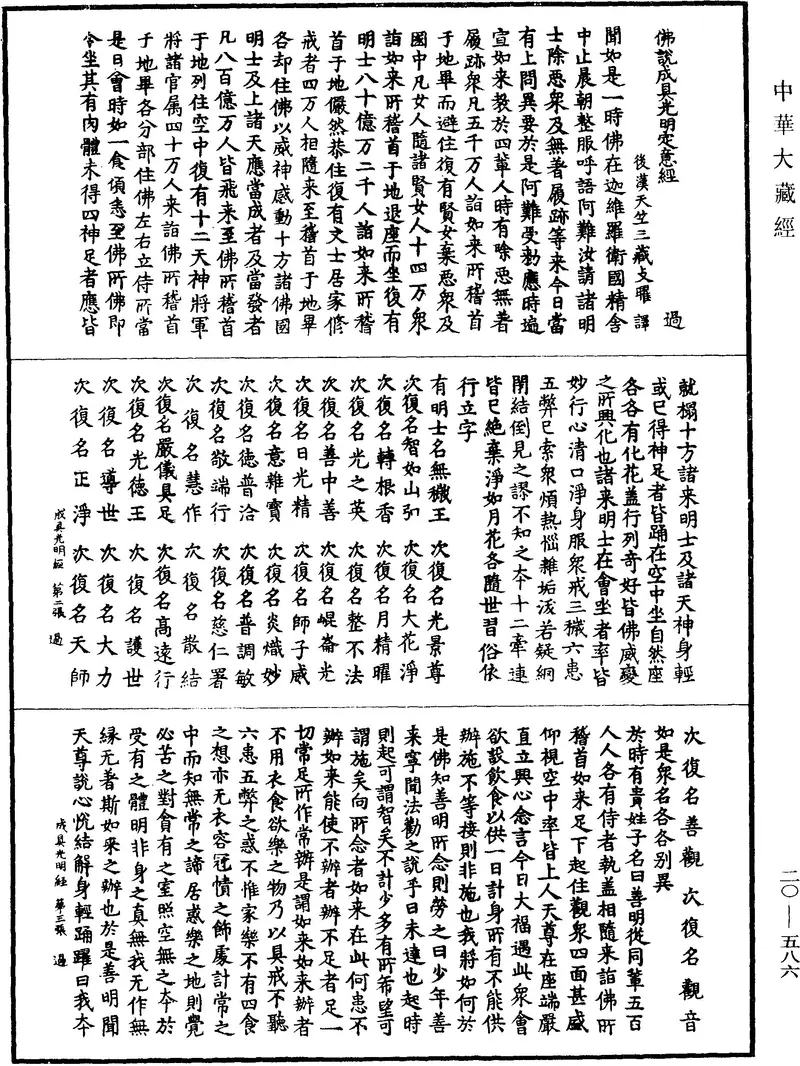 中華大藏經
佛說成具光明定意經
過
後漢天竺三藏支曜譯
聞如是一時佛在迦維羅衛國精舍
中止晨朝整服呼語阿難汝請諸明
士除惡衆及無著履跡等来今日當
有上問異要於是阿難受勑應時遍
宣如来教於四輩人時有除惡無著
履跡衆凡五千万人詣如来所稽首
于地畢而避住復有賢女棄惡衆及
國中凡女人隨諸賢女人十四万衆
詣如来所稽首于地退座而坐復有
明士八十億万二千人詣如来所稽
首于地儼然恭住復有文士居家修
戒者四万人相隨来至稽首于地畢
各却住佛以威神感動十方諸佛國
明士及上諸天應當成者及當發者
凡八百億万人皆飛来至佛所稽首
于地列住空中復有十二天神將軍
將諸官属四十万人来詣佛所稽首
于地畢各分部住佛左右立侍所當
是日會時如一食頃悉至佛所佛即
令坐其有肉體未得四神足者應皆
就榻十方諸来明士及諸天神身輕
或已得神足者皆踊在空中坐自然座
各各有化花蓋行列奇好皆佛威變
之所興化也諸来明士在會坐者率皆
妙行心清口淨身服衆戒三穢六患
五弊已索衆煩熱惱雜垢泼若疑網
閉結倒見之謬不知之夲十二牽連
皆已絶棄淨如月花各隨世習俗依
行立字
有明士名無穢王　次復名光景尊
次復名智如山弘　次復名大花淨
次復名轉根香　次復名月精曜
次復名光之英　次復名整不法
次復名善中善　次復名崐崙光
次復名日光精　次復名師子威
次復名意雜寶　次復名炎熾妙
次復名德普洽　次復名普調敏
次復名敬端行　次復名慈仁署
次復名慧作　次復名散結
次復名嚴儀具足　次復名髙遠行
次復名光德王　次復名護世
次復名導世　次復名大力
次復名正淨　次復名天師
成具光明經　第二張　過
次復名善觀　次復名觀音
如是衆名各各別異
於時有貴姓子名曰善明從同輩五百
人人各有侍者執蓋相隨来詣佛所
稽首如来足下起住觀衆四面甚盛
仰視空中率皆上人天尊在座端嚴
直立興心念言今日大福遇此衆會
欲設飲食以供一日計身所有不能供
辦施不等接則非施也我將如何於
是佛知善明所念則勞之曰少年善
来寧聞法勸之說乎曰未達也起時
則起可謂智矣不計少多有所希望可
謂施矣向所念者如来在此何患不
辦如来能使不辦者辦不足者足一
切常足所作常辦是謂如来如来辦者
不用衣食欲樂之物乃以具戒不聽
六患五弊之惑不惟家樂不有四食
之想亦无衣容冠幘之飾處計常之
中而知無常之諦居惑樂之地則覺
必苦之對貪有之室照空無之夲於
受有之體明非身之真無我无作無
縁无著斯如来之辦也於是善明聞
天尊說心恱結解身輕踊躍曰我夲
成具光明經　第三張　過
二〇—五八六